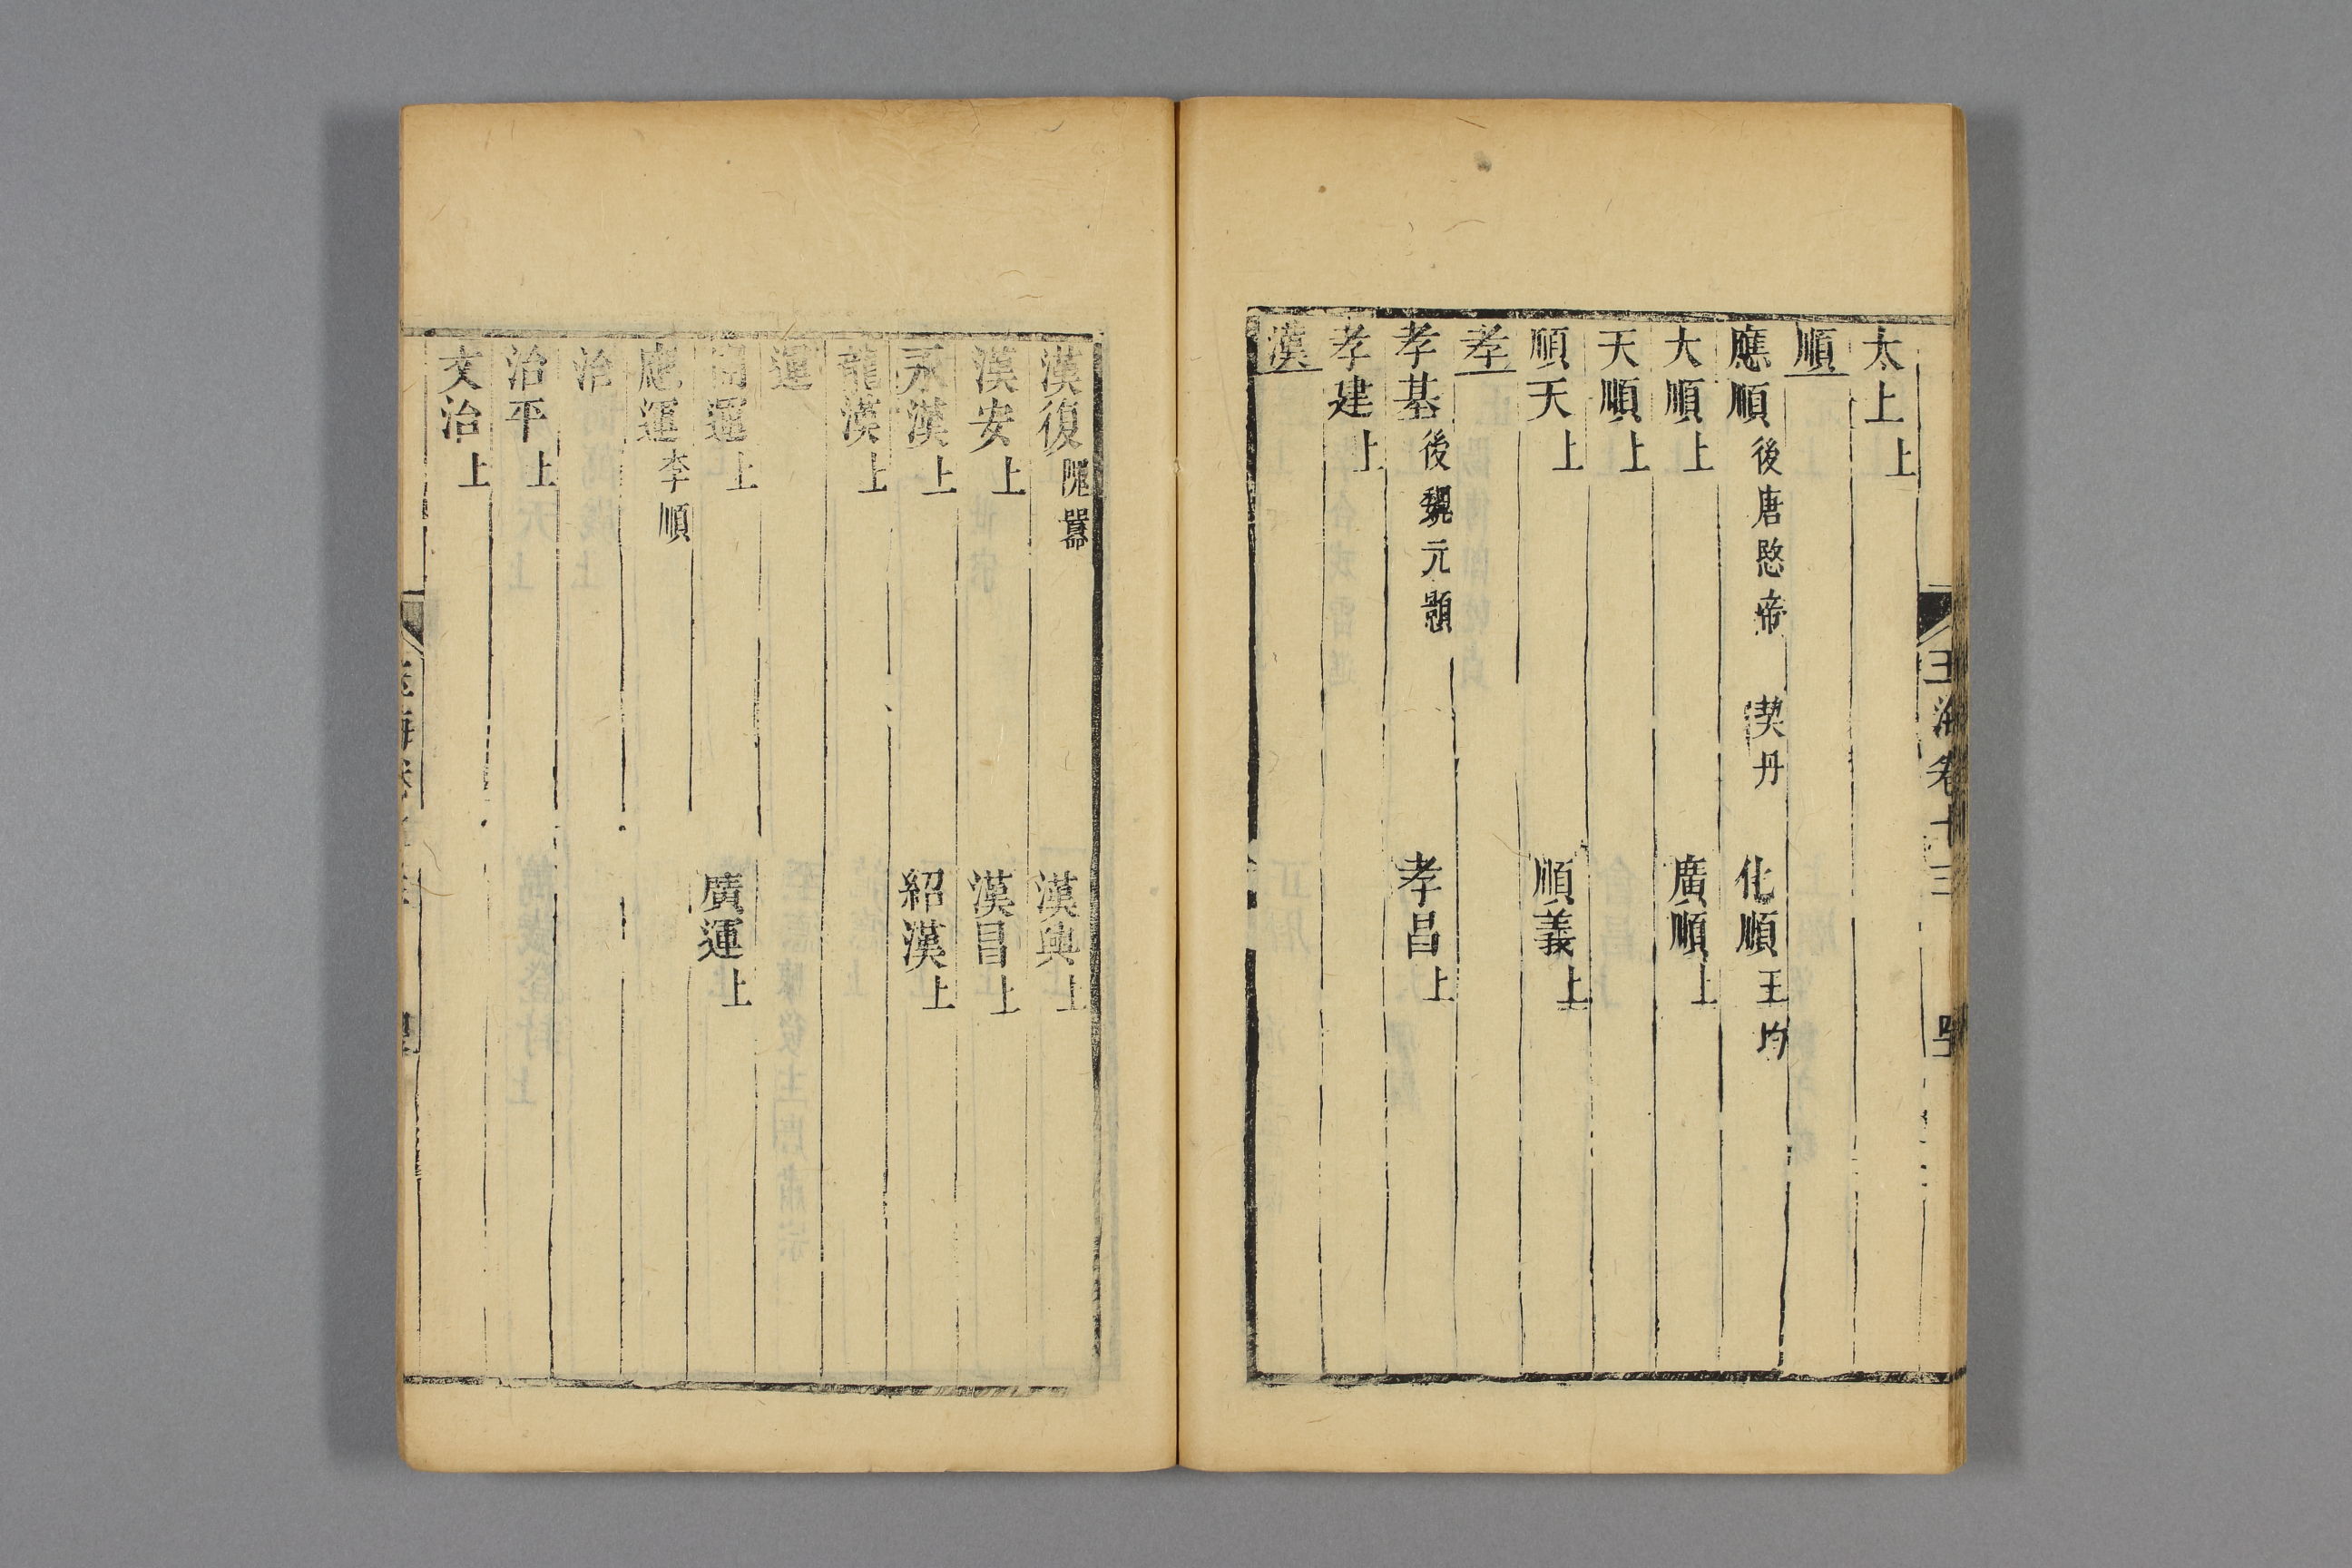 太上上
順
應順後唐愍帝　契丹　化順王均
大順上　廣順上
天順上
順天上　順義上
孝
孝基後魏元顥　孝昌上
孝建上
漢
漢復隗囂　漢興上
漢安上　漢昌上
永漢上　紹漢上
龍漢上
運
開運上　廣運上
應運李順
治
治平上
文治上
玉海卷十三